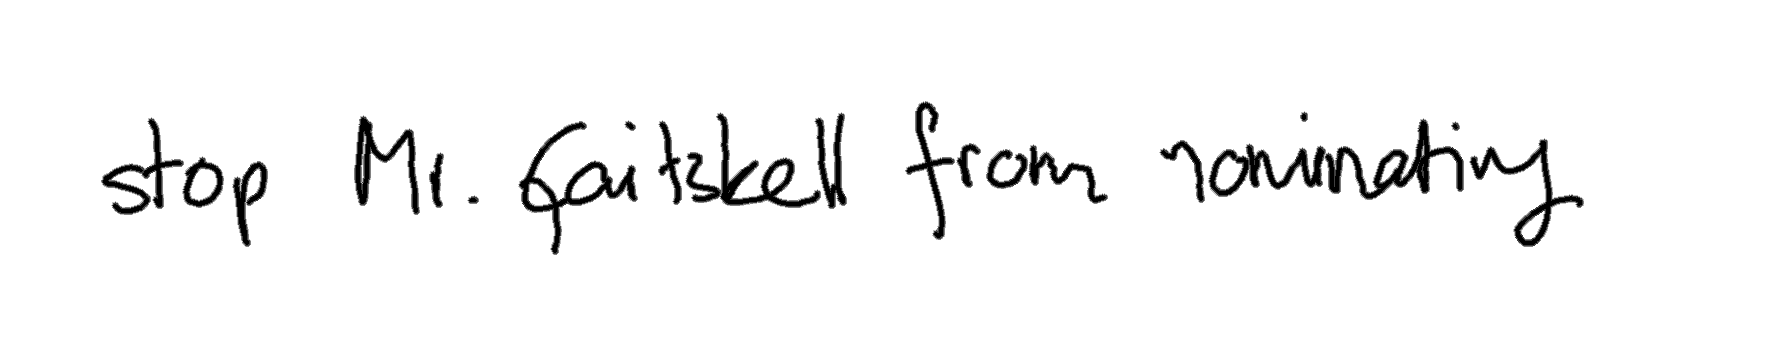 stop Mr. Gaitskell from nominating